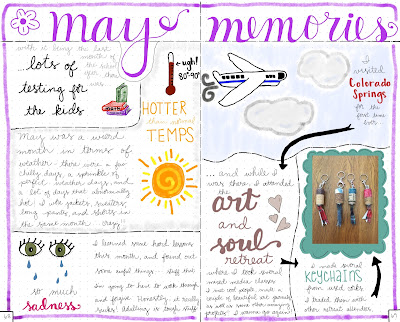 may memories
with it being the last
month of the
school
year, there
was
...lots of
testing for
the kids
ugh!
80°-90°
HOTTER
than normal
TEMPS
may was a weird
month in terms of
weather. there were a few
chilly days, a sprinkle of
perfect weather days, and
a lot of days that abnormally
hot. I wore jackets, sweaters,
long pants, and shorts in
the same month. crazy!
so much
sadness
I learned some hard lessons
this month, and found out
some awful things. stuff that
I'm going to have to work through
and forgive. Honestly, it really
sucks! Adulting is tough stuff.
I
visited
Colorado
Springs
for the
first time
ever
... and while I
was there, I attended the
art
and
soul
retreat
where I took several
mixed media classes.
I met cool people, made a
couple of beautiful art journals
as well as some other amazing
projects. I wanna go again!
I made several
KEYCHAINS
from used corks.
I traded them with
other retreat attendees.